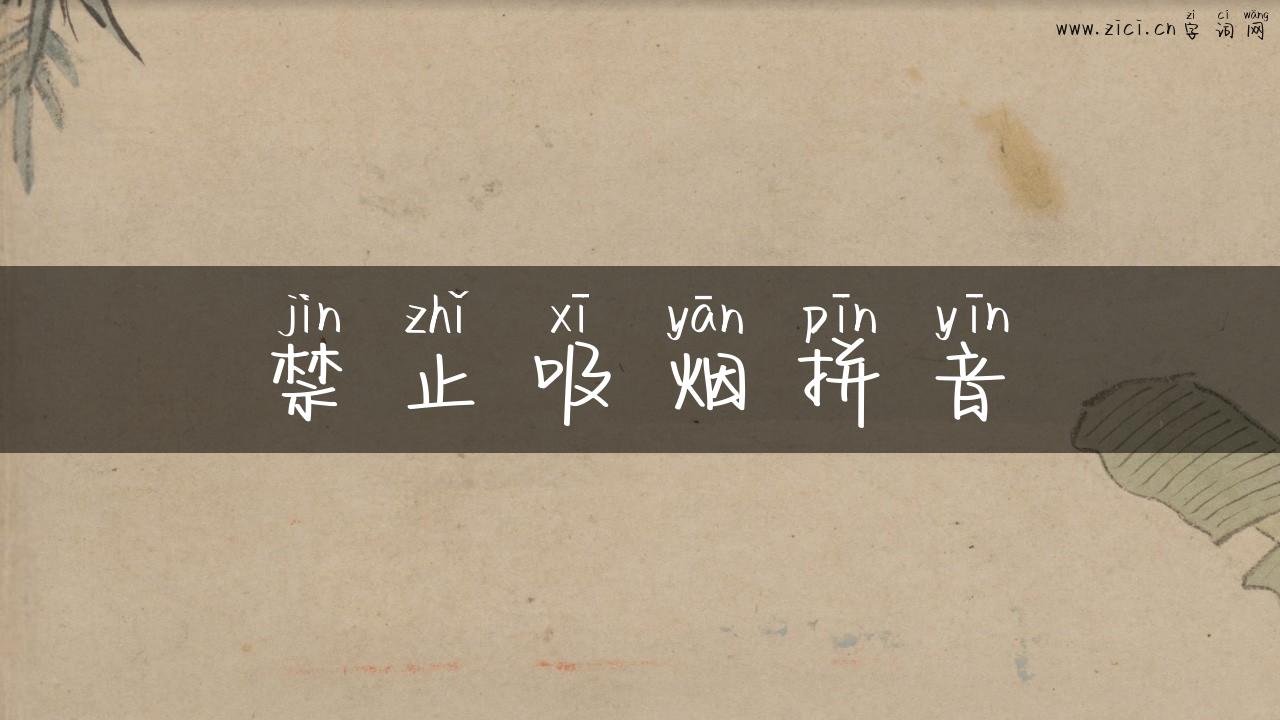 zì cí wǎng
www.zici.cn 字 词 网
jìn zhǐ xī yān pīn yīn
禁 止 吸 烟 拼 音